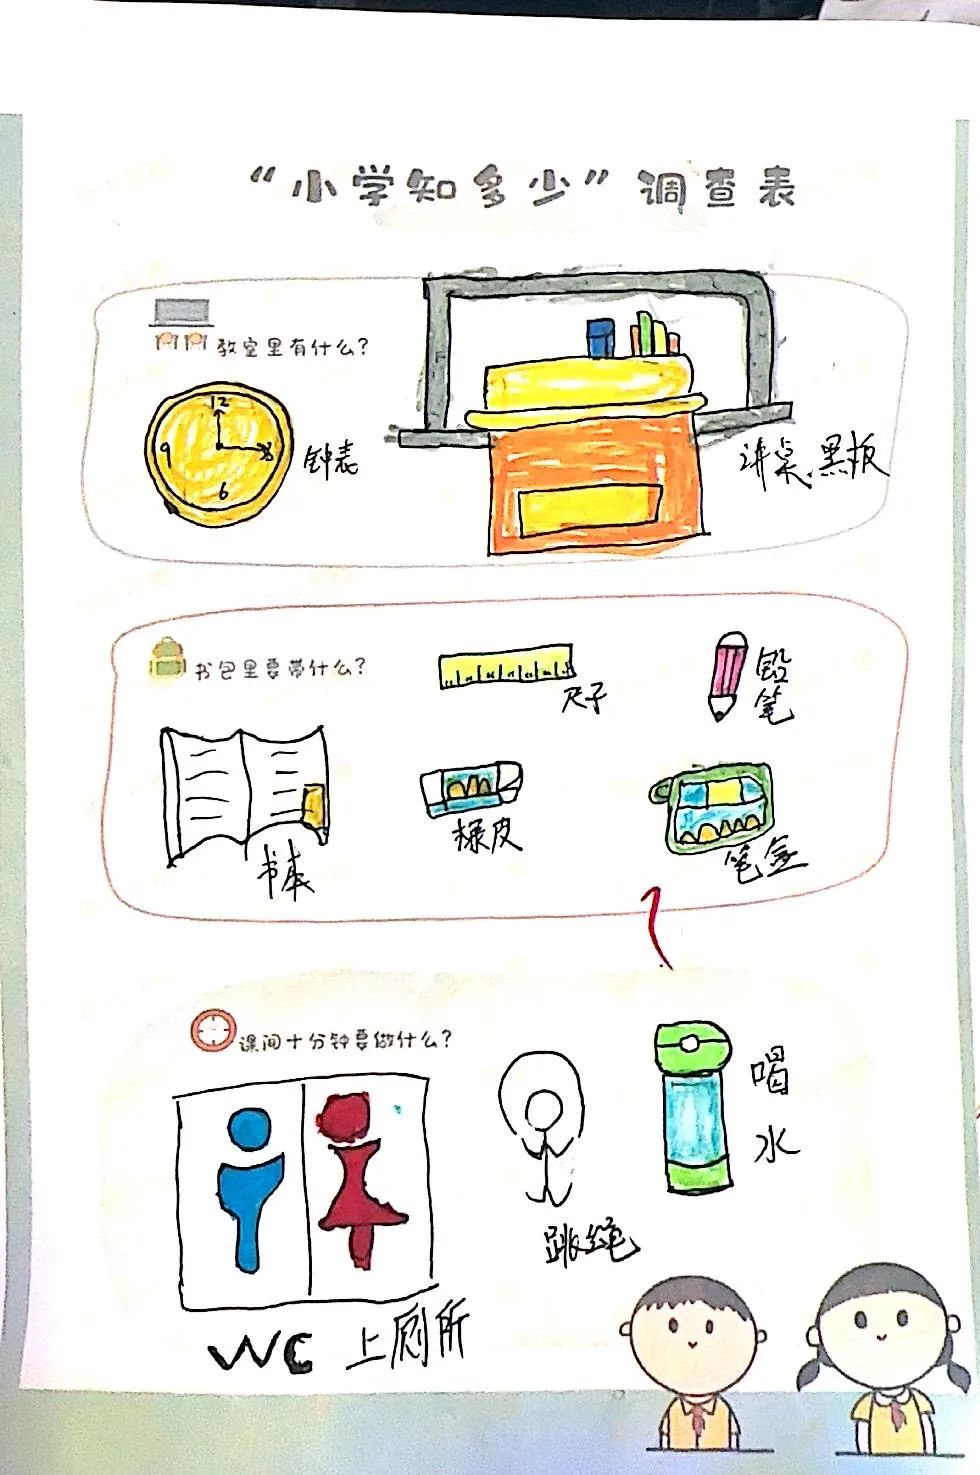 “小学知多少”调查表
教室里有什么?
12
9
6
钟表
讲桌、黑板
书包里要带什么?
尺子
铅笔
书本
橡皮
笔盒
课间十分钟要做什么?
喝水
跳绳
WC 上厕所